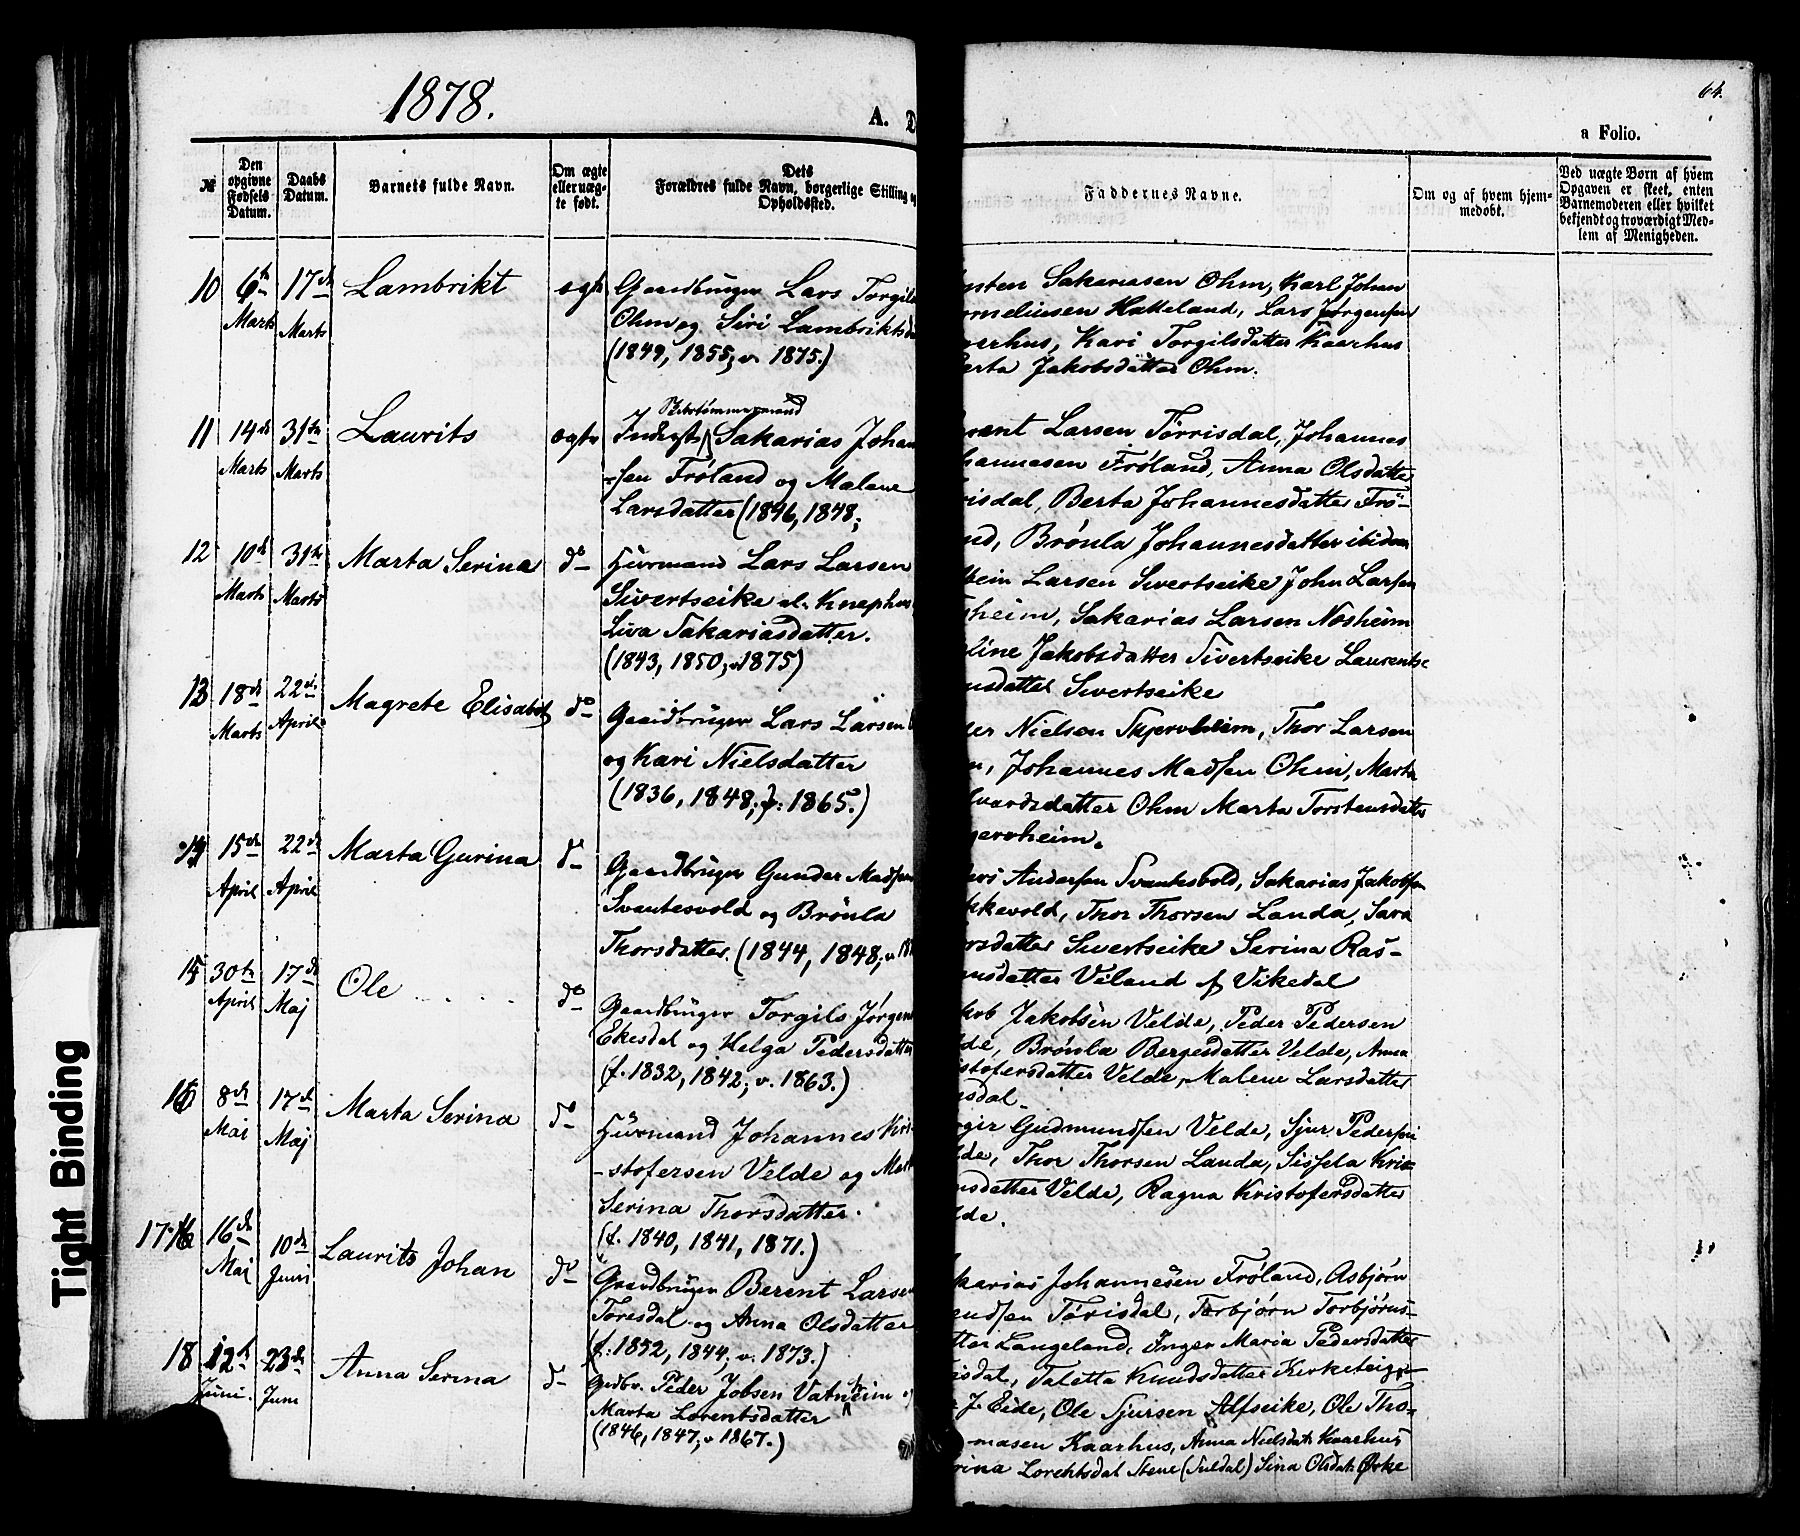 1878.
A. D
64.
a Folio.
№
Den opgivne Fødsels Datum.
Daabs Datum.
Barnets fulde Navn.
Om ægte eller uægte født.
Dets Forældres fulde Navn, borgerlige Stilling og Opholdssted.
Faddernes Navne.
Om og af hvem hjemmedøbt.
Ved uægte Børn af hvem Opgaven er skeet, enten Barnemoderen eller hvilket bekjendt og troværdigt Medlem af Menigheden.
10 6te Marts 17de Marts Lambrikt ægte Gaardbruger Lars Torgils
Ohm og Siri Lambrikts
(1849, 1855, v. 1875.)
ysten Sakariasen Ohm, Karl Johan
orneliusen Hatteland, Lars Jørgensen
Kari Torgilsdatter Kaarhus
erta Jakobsdatter Ohm.
11 14de Marts 31te Marts Laurits ægte Sakarias Johan
-sen Frøland og Malene
Larsdatter (1846, 1848;
erent Larsen Tørrisdal, Johannes
hannesen Frøland, Anna Olsdatter
risdal, Berta Johannesdatter Frø-
nd, Brønla Johannesdatter ibidem
12 10de Marts 31te Marts Marta Serina do Huusmand Lars Larsen
Sivertseike
Siva Sakariasdatter.
(1843, 1850, v. 1875)
tein Larsen Sivertseike John Larsen
sheim, Sakarias Larsen Nøsheim
line Jakobsdatter Sivertseike Laurentse
nsdatter Sivertseike
13 18de Marts 22de April Magrete Elisabet do Gaardbruger Lars Larsen
og Kari Nielsdatter
(1836, 1848; v: 1865.)
der Nielsen Skjerveheim, Thor Larsen
m, Johannes Madsen Ohm, Marta
lvardsdatter Ohm Marta Torstensdatter
jerveheim.
14 15de April 22de April Marta Gurina do Gaardbruger Gunder Madsen
Svantesvold og Brønla
Thorsdatter. (1844, 1848, v. 18
Andersen Svantesvold, Sakarias Jakobsen
kkevold, Thor Thorsen Landa, Sara
rsdatter Sivertseike Serina Ras-
musdatter Véland af Vikedal
15 30te April 17de Maj Ole do Gaardbruger Torgils Jørgen
Ekesdal og Helga Pedersdatter
(f. 1832, 1842; v. 1863.)
kob Jakobsen Velde, Peder Pedersen
lde, Brønla Bergesdatter Velde, Anna
istofersdatter Velde, Malene Larsdatter
sdal.
16 8de Mai 17de Maj Marta Serina do Huusmand Johannes Kri-
-stofersen Velde og Mart
Serina Thorsdatter.
(f. 1840, 1841, 1871.)
Gudmundsen Velde, Sjur Pedersen
lde, Thor Thorsen Landa, Sissela Kris-
nsdatter Velde, Ragna Kristofersdatter
lde.
17 16de Maj 10de Juni Laurits Johan do Gaardbruger Berent Larsen
Toresdal og Anna Olsdatter
(f. 1852, 1844, v. 1873.)
karias Johannesen Frøland, Asbjørn
undsen Tørisdal, Torbjørn Torbjørns-
tter Langeland, Inger Maria Pedersdatter
isdal, Taletta Knudsdatter Kirketeig
18 12te Juni. 23de Juni Anna Serina do Grdbr. Peder Jobsen Vatnheim og
Marta Lorentsdatter
(1846, 1847, v. 1867.)
J. Eide, Ole Sjursen Alfseike, Ole Tho-
masen Kaarhus, Anna Nielsdat. Kaarhus
rina Lorentsdat. Stene (Suldal) Sina Olsdat. Ørke
Tight Binding